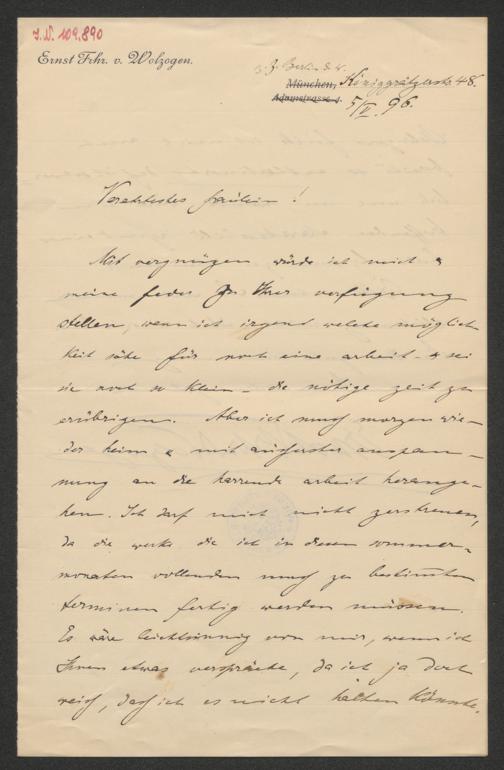 I.N. 109.890
Ernst Frhr. v. Wolzogen.
z. Z. Berlin S.W.
München, Königgrätzerstr. 48.
Adamstrasse
5/V. 96.
Verehrtestes fräulein!
Mit vergnügen würde ich mich &
meine feder zu Ihrer verfügung
stellen, wenn ich irgend welche möglich
keit sähe für noch eine arbeit - & sei
sie noch so klein - die nötige zeit zu
erübrigen. Aber ich muß morgen wie-
der heim & mit äußerster anspan-
nung an die harrende arbeit herange-
hen. Ich darf mich nicht zerstreuen,
da die werke die ich in diesen sommer-
monaten vollenden muß zu bestimten
terminen fertig werden müssen.
Es wäre leichtsinnig von mir, wenn ich
Ihnen etwas verspräche, da ich ja doch
weiß, daß ich es nicht halten könnte.